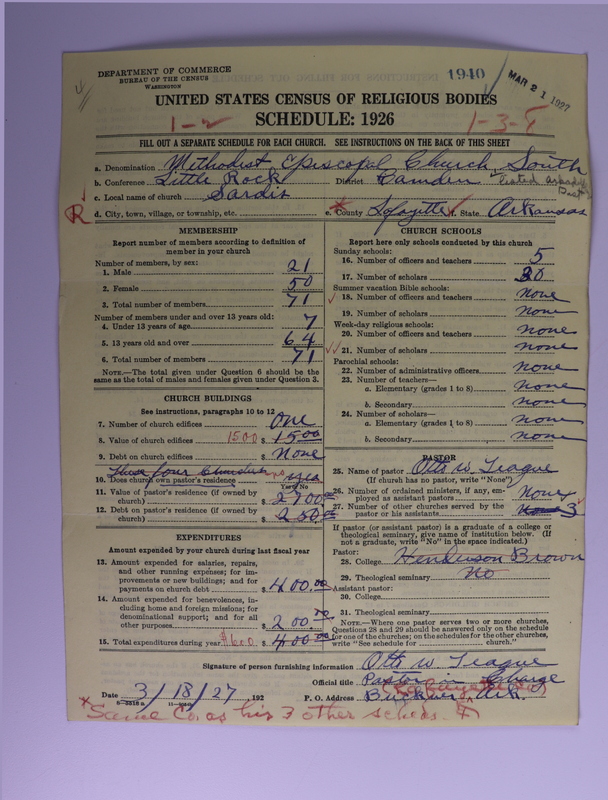 DEPARTMENT OF COMMERCE
BUREAU OF THE CENSUS
WASHINGTON
1940
MAR 21 1927
UNITED STATES CENSUS OF RELIGIOUS BODIES
1-2 SCHEDULE: 1926 1-3-
FILL OUT A SEPARATE SCHEDULE FOR EACH CHURCH. SEE INSTRUCTIONS ON THE BACK OF THIS SHEET
a. Denomination Methodist Episcopal Church, South
b. Conference Little Rock District Camden
c. Local name of church Sardis
R d. City, town, village, or township, etc. e. County Lafayette f. State Arkansas
MEMBERSHIP
Report number of members according to definition of
member in your church
Number of members, by sex:
1. Male 21
2. Female 50
3. Total number of members 71
Number of members under and over 13 years old:
4. Under 13 years of age 7
5. 13 years old and over 64
6. Total number of members 71
NOTE.—The total given under Question 6 should be the
same as the total of males and females given under Question 3.
CHURCH BUILDINGS
See instructions, paragraphs 10 to 12
7. Number of church edifices One
8. Value of church edifices 1500 $ 1500
9. Debt on church edifices $ None
These four Churches no
10. Does church own pastor's residence yea
Yes or No
11. Value of pastor's residence (if owned by
church) $ 2700.00
12. Debt on pastor's residence (if owned by
church) $ 250.00
EXPENDITURES
Amount expended by your church during last fiscal year
13. Amount expended for salaries, repairs,
and other running expenses; for im-
provements or new buildings; and for
payments on church debt $ 400.00
14. Amount expended for benevolences, in-
cluding home and foreign missions; for
denominational support; and for all
other purposes $ 200.70
15. Total expenditures during year $600 $ 400.00
CHURCH SCHOOLS
Report here only schools conducted by this church
Sunday schools:
16. Number of officers and teachers 5
17. Number of scholars 30
Summer vacation Bible schools:
18. Number of officers and teachers none
19. Number of scholars none
Week-day religious schools:
20. Number of officers and teachers none
21. Number of scholars none
Parochial schools:
22. Number of administrative officers none
23. Number of teachers—
a. Elementary (grades 1 to 8) none
b. Secondary none
24. Number of scholars—
a. Elementary (grades 1 to 8) none
b. Secondary none
PASTOR
25. Name of pastor Otto W. Teague
(If church has no pastor, write "None")
26. Number of ordained ministers, if any, em-
ployed as assistant pastors none
27. Number of other churches served by the
pastor or his assistants none 3
If pastor (or assistant pastor) is a graduate of a college or
theological seminary, give name of institution below. (If
not a graduate, write "No" in the space indicated.)
Pastor:
28. College Henderson Brown
29. Theological seminary No
Assistant pastor:
30. College
31. Theological seminary
NOTE.—Where one pastor serves two or more churches,
Questions 28 and 29 should be answered only on the schedule
for one of the churches; on the schedules for the other churches,
write "See schedule for church."
Signature of person furnishing information Otto W. Teague
Official title Pastor in Charge
Date 3/18/27, 192 P. O. Address Buckner, Ark.
*Same Co. as his 3 other scheds.